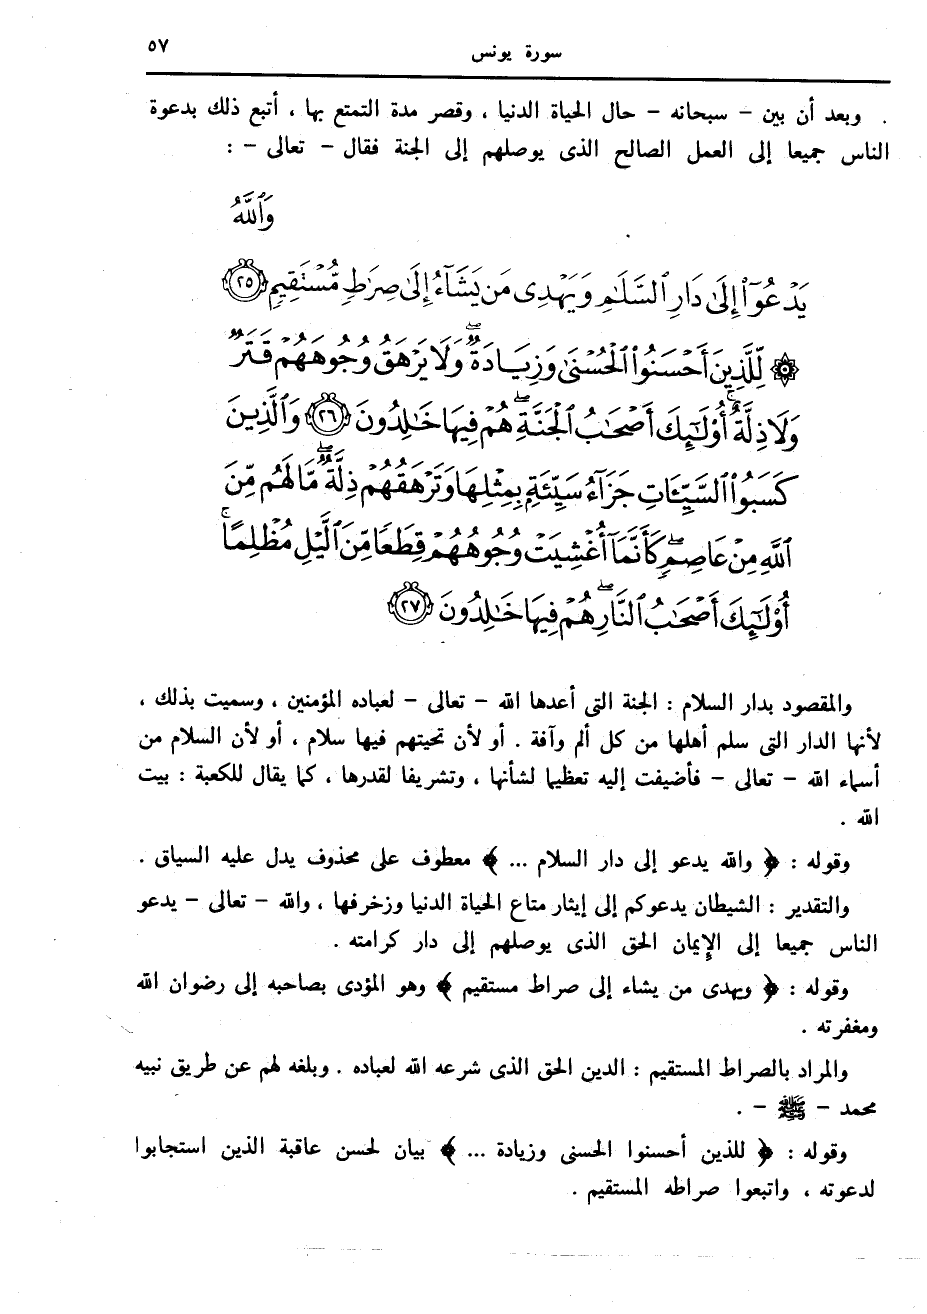 سورة يونس ٥٧
. وبعد أن بين – سبحانه – حال الحياة الدنيا ، وقصر مدة التمتع بها ، أتبع ذلك بدعوة
الناس جميعا إلى العمل الصالح الذى يوصلهم إلى الجنة فقال – تعالى – :
وَٱللَّهُ
يَدْعُوٓا۟ إِلَىٰ دَارِ ٱلسَّلَٰمِ وَيَهْدِى مَن يَشَآءُ إِلَىٰ صِرَٰطٍ مُّسْتَقِيمٍ ٢٥
۞ لِّلَّذِينَ أَحْسَنُوا۟ ٱلْحُسْنَىٰ وَزِيَادَةٌ ۖ وَلَا يَرْهَقُ وُجُوهَهُمْ قَتَرٌ
وَلَا ذِلَّةٌ ۚ أُو۟لَٰٓئِكَ أَصْحَٰبُ ٱلْجَنَّةِ ۖ هُمْ فِيهَا خَٰلِدُونَ ٢٦ وَٱلَّذِينَ
كَسَبُوا۟ ٱلسَّيِّـَٔاتِ جَزَآءُ سَيِّئَةٍۭ بِمِثْلِهَا وَتَرْهَقُهُمْ ذِلَّةٌ ۖ مَّا لَهُم مِّنَ
ٱللَّهِ مِنْ عَاصِمٍ ۖ كَأَنَّمَآ أُغْشِيَتْ وُجُوهُهُمْ قِطَعًا مِّنَ ٱلَّيْلِ مُظْلِمًا ۚ
أُو۟لَٰٓئِكَ أَصْحَٰبُ ٱلنَّارِ ۖ هُمْ فِيهَا خَٰلِدُونَ ٢٧
والمقصود بدار السلام : الجنة التى أعدها الله – تعالى – لعباده المؤمنين ، وسميت بذلك ،
لأنها الدار التى سلم أهلها من كل ألم وآفة . أو لأن تحيتهم فيها سلام ، أو لأن السلام من
أسماء الله – تعالى – فأضيفت إليه تعظيما لشأنها ، وتشريفا لقدرها ، كما يقال للكعبة : بيت
الله .
وقوله : ﴿ والله يدعو إلى دار السلام ... ﴾ معطوف على محذوف يدل عليه السياق .
والتقدير : الشيطان يدعوكم إلى إيثار متاع الحياة الدنيا وزخرفها ، والله – تعالى – يدعو
الناس جميعا إلى الإيمان الحق الذى يوصلهم إلى دار كرامته .
وقوله : ﴿ ويهدى من يشاء إلى صراط مستقيم ﴾ وهو المؤدى بصاحبه إلى رضوان الله
ومغفرته .
والمراد بالصراط المستقيم : الدين الحق الذى شرعه الله لعباده . وبلغه لهم عن طريق نبيه
محمد – ﷺ – .
وقوله : ﴿ للذين أحسنوا الحسنى وزيادة ... ﴾ بيان لحسن عاقبة الذين استجابوا
لدعوته ، واتبعوا صراطه المستقيم .